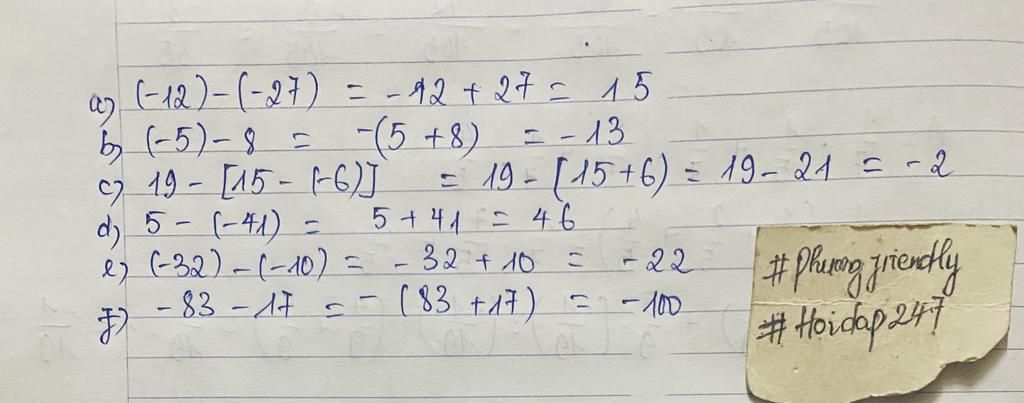 a) (-12) - (-27) = -12 + 27 = 15
b) (-5) - 8 = -(5 + 8) = -13
c) 19 - [15 - (-6)] = 19 - [15 + 6) = 19 - 21 = -2
d) 5 - (-41) = 5 + 41 = 46
e) (-32) - (-10) = -32 + 10 = -22
f) -83 - 17 = -(83 + 17) = -100
# Phuong friendly
# Hoidap 247